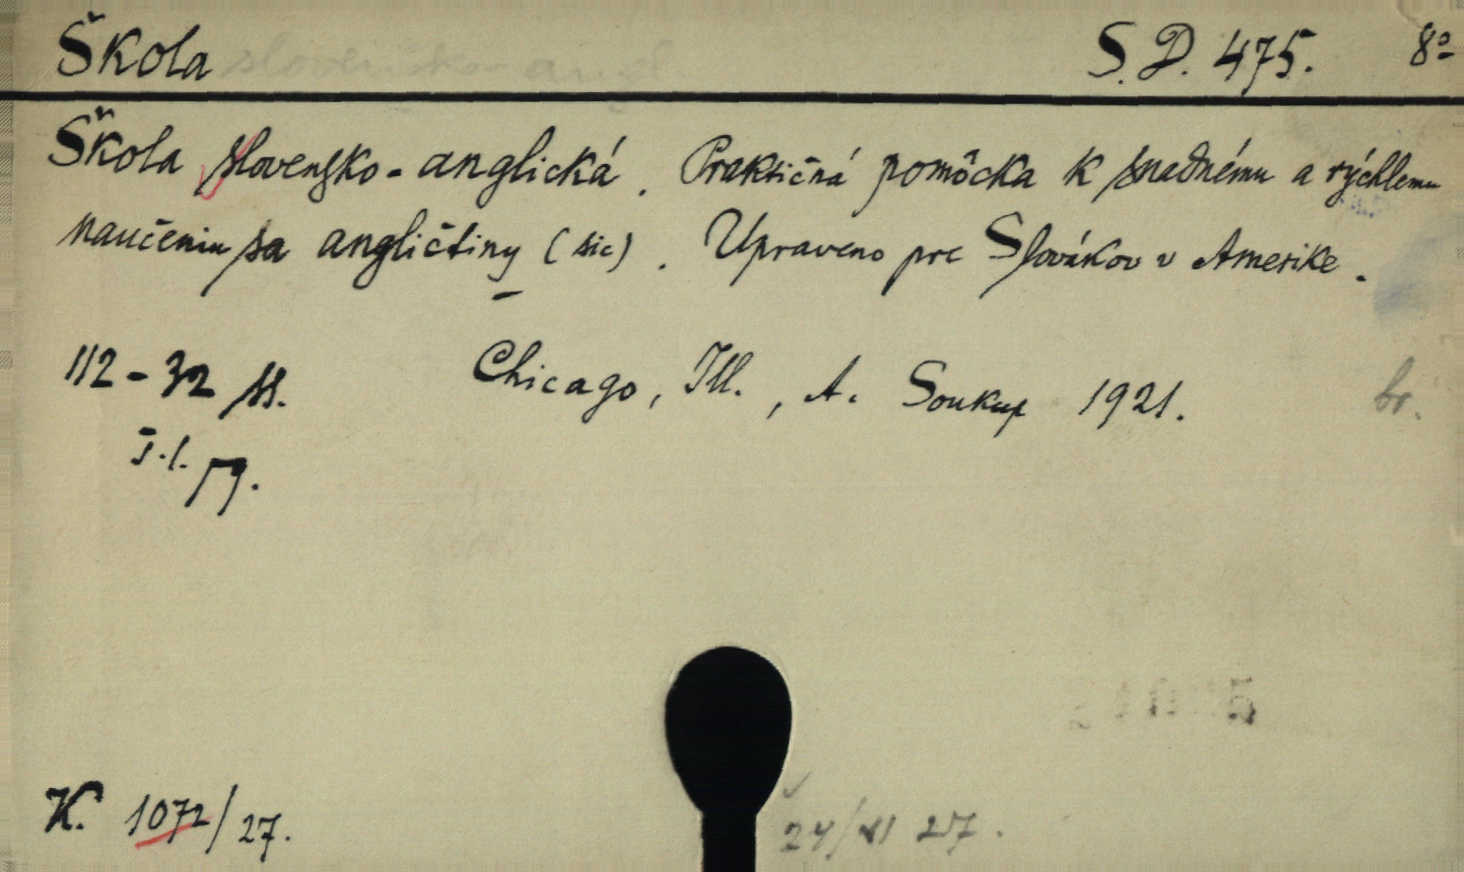 Škola slovensko-angl. S.D. 475. 8°
Škola slovensko-anglická. Praktičná pomôcka k snadnému a rýchlemu
naučeniu sa angličtiny (sic). Upraveno pre Slovákov v Amerike.
112-32 ss. Chicago, Ill., A. Soukup 1921. br.
K. 1072/27. 24/XI 27.